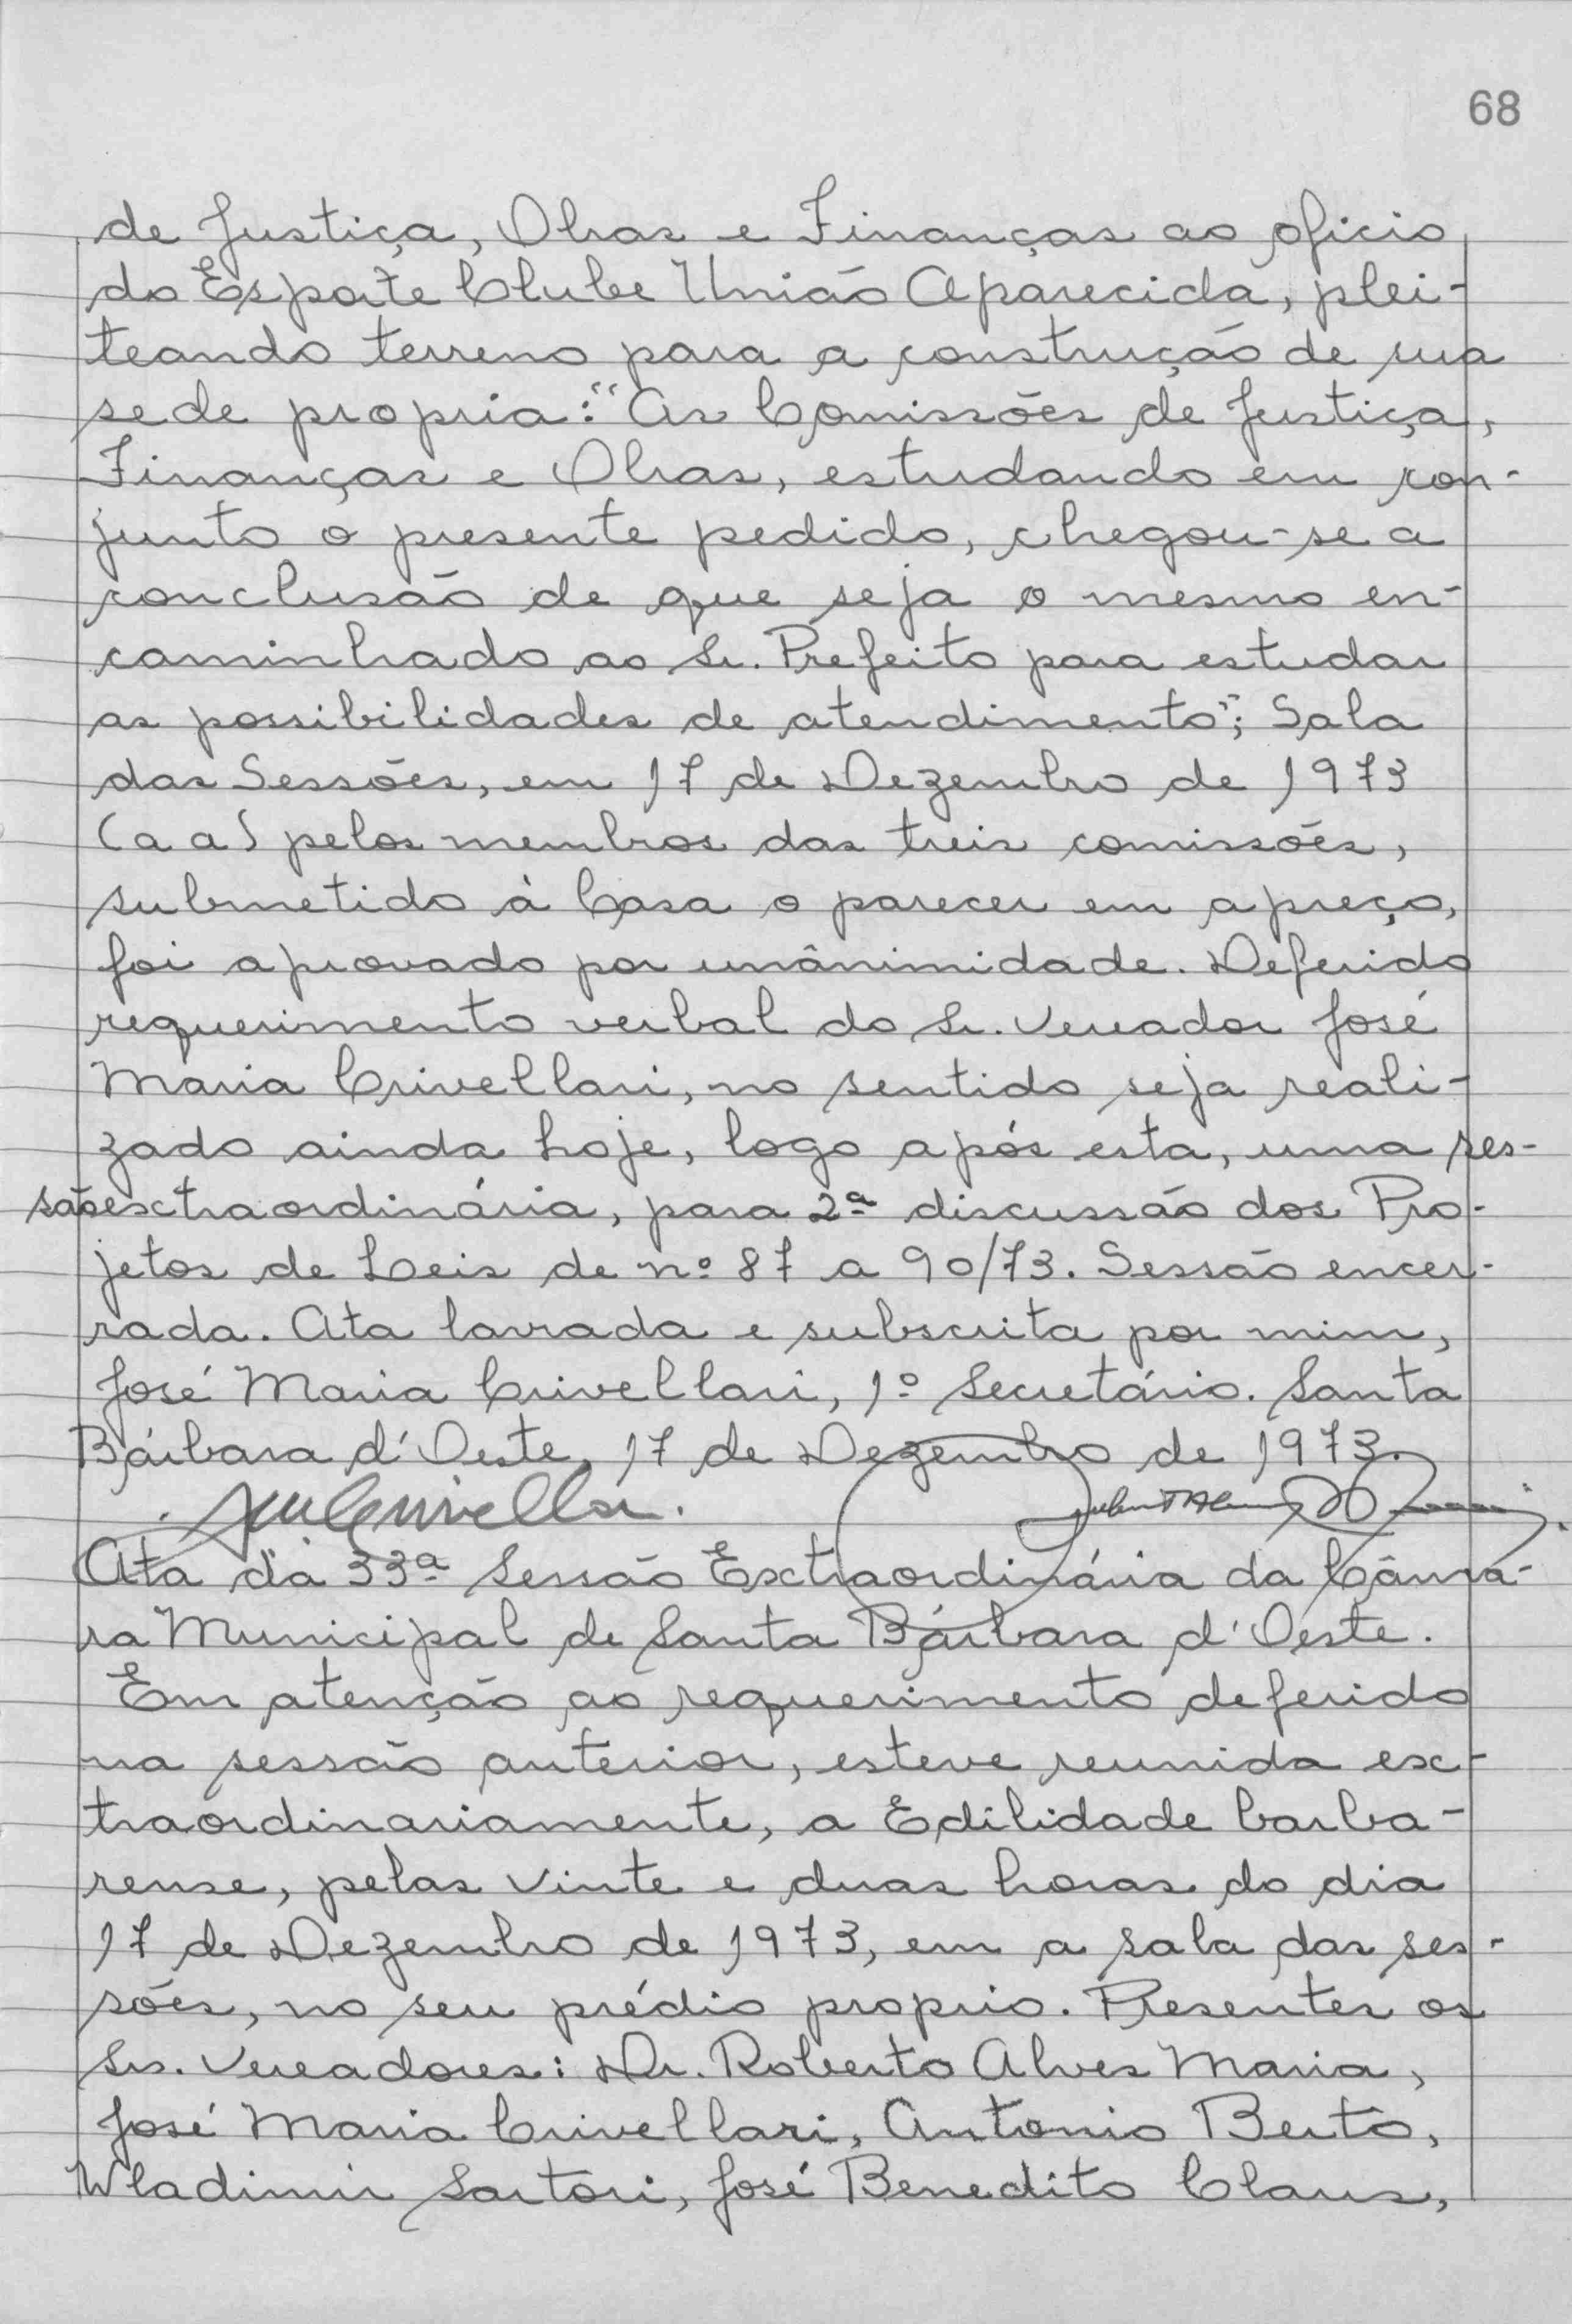 68
de Justiça, Obras e Finanças ao oficio
do Esporte Clube União Aparecida, plei-
teando terreno para a construção de sua
sede propria: "As Comissões de Justiça,
Finanças e Obras, estudando em con-
junto o presente pedido, chegou-se a
conclusão de que seja o mesmo en-
caminhado ao Sr. Prefeito para estudar
as possibilidades de atendimento"; Sala
das Sessões, em 17 de Dezembro de 1973
(a a) pelos membros das treis comissões,
submetido à Casa o parecer em apreço,
foi aprovado por unânimidade. Deferido
requerimento verbal do Sr. Vereador José
Maria Crivellari, no sentido seja reali-
zado ainda hoje, logo após esta, uma ses-
são extraordinária, para 2ª discussão dos Pro-
jetos de Leis de nº 87 a 90/73. Sessão encer-
rada. Ata lavrada e subscrita por mim,
José Maria Crivellari, 1º Secretário. Santa
Bárbara d'Oeste, 17 de Dezembro de 1973.
Ata da 33ª Sessão Extraordinária da Câma-
ra Municipal de Santa Bárbara d'Oeste.
Em atenção ao requerimento deferido
na sessão anterior, esteve reunida ex-
traordinariamente, a Edilidade barba-
rense, pelas vinte e duas horas do dia
17 de Dezembro de 1973, em a sala das ses-
sões, no seu prédio proprio. Presentes os
Srs. Vereadores: Dr. Roberto Alves Maria,
José Maria Crivellari, Antonio Berto,
Wladimir Sartori, José Benedito Claus,